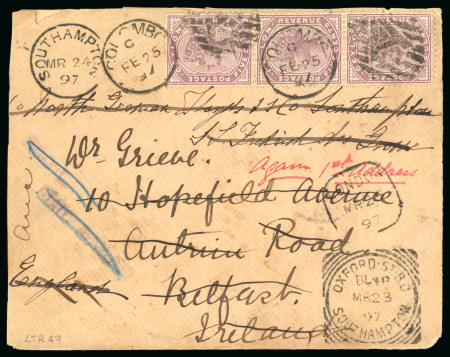 SOUTHAMPTON
MR 24
97
COLOMBO
C
FE 25
97
POSTAGE
REVENUE
COLOMBO
C
FE 25
REVENUE
POSTAGE
c/o North German Lloyd S.S. Co Southampton
Mr Grieve
Again 1st Address
10 Hopefield Avenue
LONDON
MR 23
97
Antrim Road
England
Belfast.
Ireland
OXFORD ST. B.O
MR 23
97
SOUTHAMPTON
LTR 49